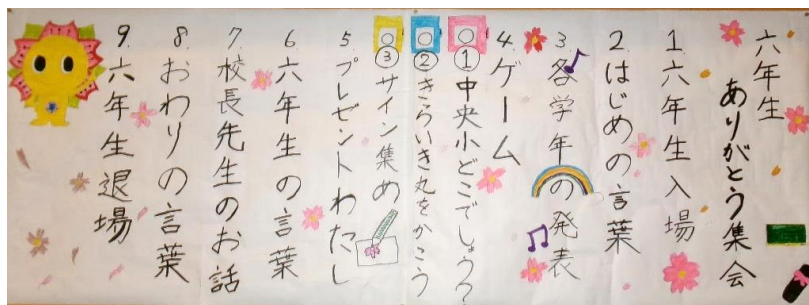 六年生
ありがとう集会
1.六年生入場
2.はじめの言葉
3.各学年の発表
4.ゲーム
①中央小どこでしょう?
②きらいき丸をかこう
③サイン集め
5.プレゼントわたし
6.六年生の言葉
7.校長先生のお話
8.おわりの言葉
9.六年生退場